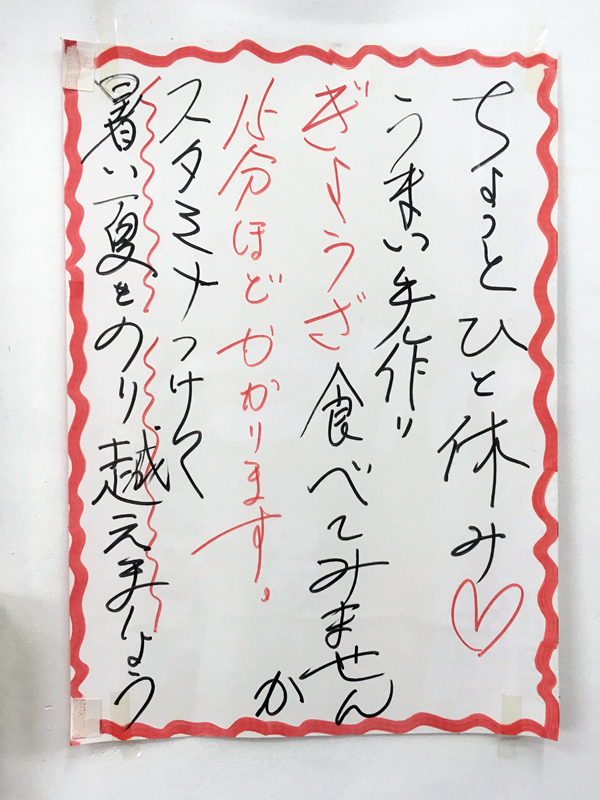 ちょっとひと休み♡
うまい手作り
ぎょうざ食べてみません
か
15分ほどかかります。
スタミナつけて
暑い夏をのり越えましょう